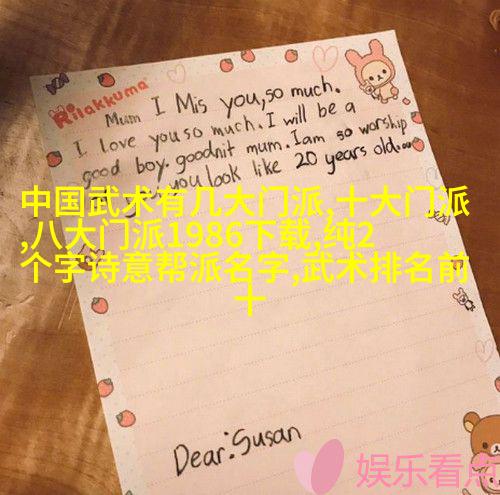 Rilakkuma
Mum I Mis you,so much.
I love you so much.I will be a
good boy.goodnit mum.Iam so worship
you look like 20 years old.
中国武术有几大门派,十大门派
,八大门派1986下载,纯2
个字诗意帮派名字,武术排名前
十
Dear:Susan
娱乐看点